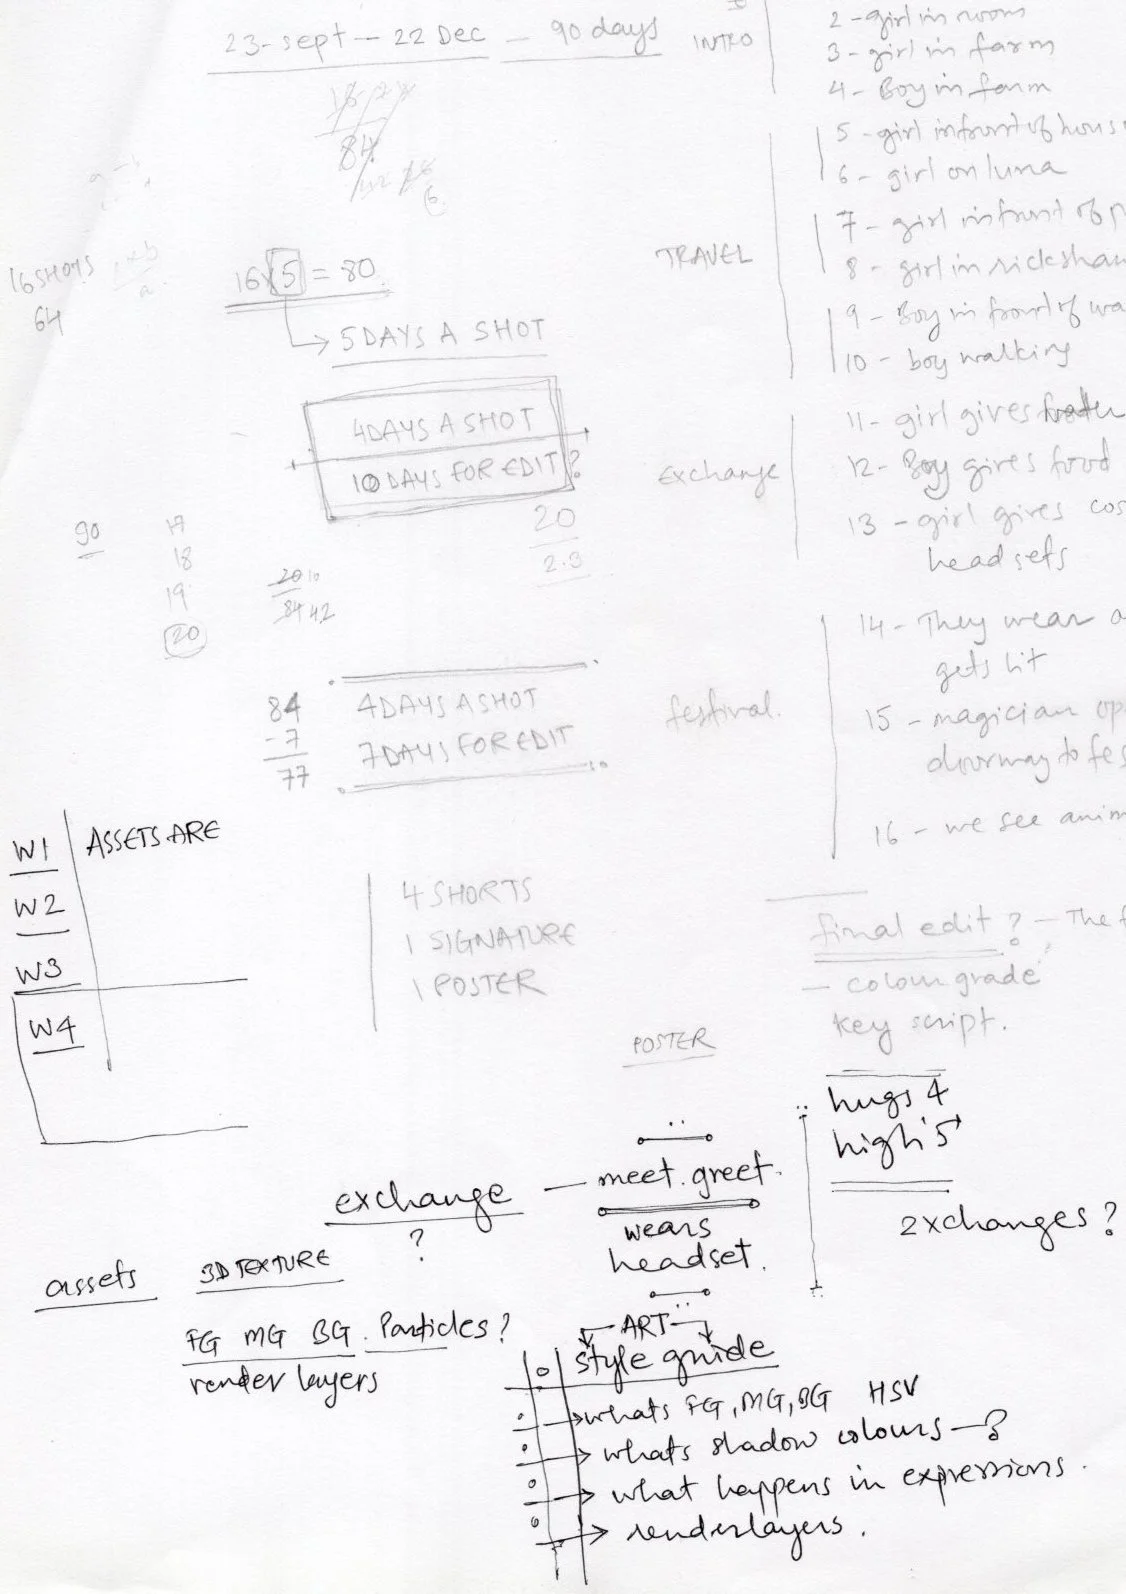 23-sept - 22 Dec - 90 days
INTRO
2 - girl in room
3 - girl in farm
4 - Boy in farm
5 - girl infront of hous
6 - girl on luna
TRAVEL
7 - girl infront of p
8 - girl in rickshaw
9 - Boy in front of wa
10 - boy walking
16 SHOTS
64
16x5 = 80
5 DAYS A SHOT
4 DAYS A SHOT
10 DAYS FOR EDIT ?
20
2.3
exchange
11 - girl gives
12 - Boy gives food
13 - girl gives cos
headsets
90
17
18
19
20
20 10
84 42
festival.
14 - They wear a
gets hit
15 - magician op
doorway to fes
16 - we see anim
84
- 7
77
4 DAYS A SHOT
7 DAYS FOR EDIT
W1 ASSETS ARE
W2
W3
W4
4 SHORTS
1 SIGNATURE
1 POSTER
final edit ? - The f
- colour grade
key script.
POSTER
hugs 4
high 5
2 xchanges ?
exchange - meet. greet.
?
wears
headset.
assets 3D TEXTURE
FG MG BG. Particles ?
render layers
ART
style guide
whats FG, MG, BG HSV
whats shadow colours - ?
what happens in expressions.
renderlayers.